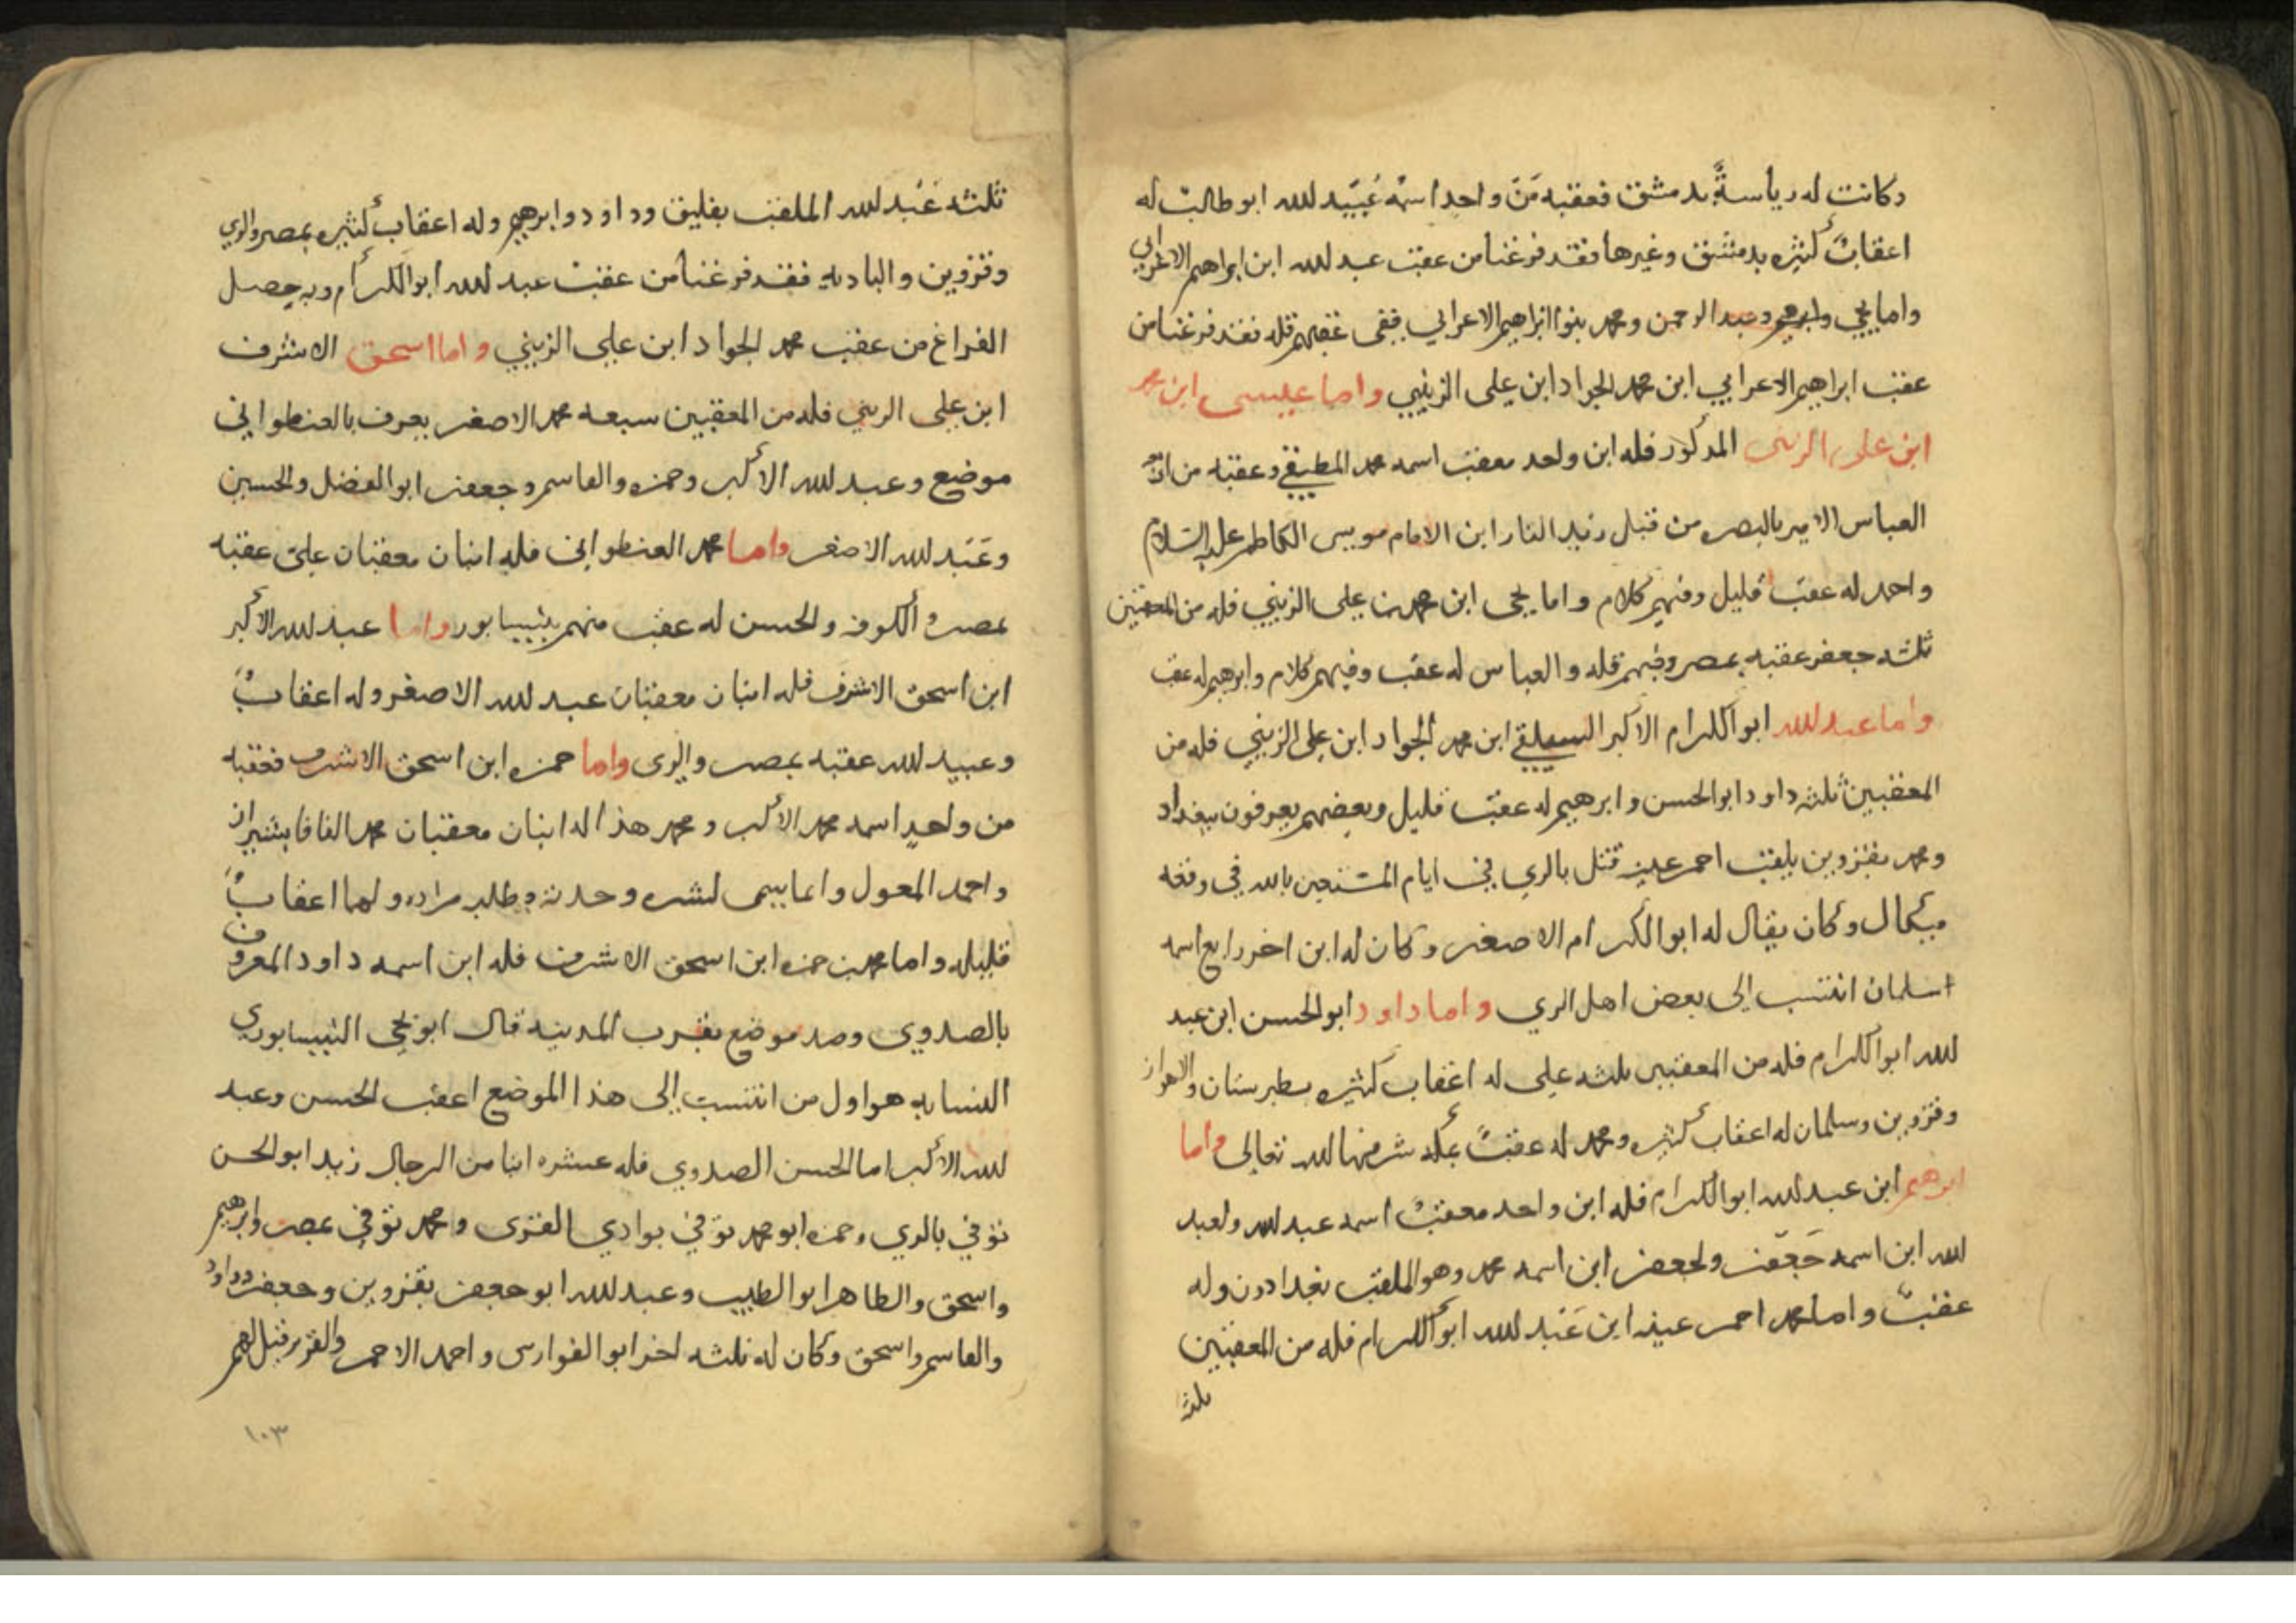 وكانت له رياسةٌ بدمشق فعقبه مَن واحد اسمهُ عُبيد لله ابو طالب له
اعقابٌ كثيره بدمشق وغيرها فقد فرغنا من عقب عبد لله ابن ابراهيم الاعرابي
واما يحي وابرهيم وعبد الرحمن ومحمد بنوا ابراهيم الاعرابي ففى عقبهم قله فقد فرغنا من
عقب ابراهيم الاعرابي ابن محمد الجواد ابن على الزينبي واما عيسى ابن محمد
ابن على الزينبى المذكور فله ابن واحد معقب اسمه محمد المطبقي وعقبه من
العباس الامير بالبصره من قبل زيد النار ابن الامام موسى الكاظم عليه السلام
واحمد له عقب قليل وفيهم كلام واما يحى ابن محمد بن على الزينبي فله من المعقبين
ثلثه جعفر عقبه بمصر وفيهم قله والعباس له عقب وفيهم كلام وابرهيم له عقب
واما عبد لله ابو الكرام الاكبر ابن محمد الجواد ابن على الزينبي فله من
المعقبين ثلثه داود ابو الحسن وابرهيم له عقب قليل وبعضهم يعرفون ببغداد
ومحمد بقزوين يلقب احمر عينه قتل بالري في ايام المستعين بالله في وقعه
ميكال وكان يقال له ابو الكرام الاصغر وكان له ابن اخر رابع اسمه
اسلمان انتسب الى بعض اهل الري واما داود ابو الحسن ابن عبد
لله ابو الكرام فله من المعقبين ثلثه على له اعقاب كثيره بطبرستان والاهواز
وقزوين وسلمان له اعقاب كثيره ومحمد له عقبٌ بمكه شرفها لله تعالى واما
ابرهيم ابن عبد لله ابو الكرام فله ابن واحد معقبٌ اسمه عبد لله ولعبد
لله ابن اسمه جَعفر ولجعفر ابن اسمه محمد وهو الملقب بغدادون وله
عقبٌ واما محمد احمر عينه ابن عَبد لله ابو الكرام فله من المعقبين
ثلثه
ثلثه عَبد لله الملقب بفليق وداود وابرهيم وله اعقاب كثيره بمصر والري
وقزوين والباديه فقد فرغنا من عقب عبد لله ابو الكرام وبه يحصل
الفراغ من عقب محمد الجواد ابن على الزينبي واما اسحق الاشرف
ابن على الزينبي فله من المعقبين سبعه محمد الاصغر يعرف بالعنطواني
موضع وعبد لله الاكبر وحمزه والقاسم وجعفر ابو الفضل والحسين
وعَبد لله الاصغر واما محمد العنطواني فله ابنان معقبان على عقبه
بمصر والكوفه والحسن له عقب منهم بنيسابور واما عبد لله الاكبر
ابن اسحق الاشرف فله ابنان معقبان عبد لله الاصغر وله اعقابٌ
وعبيد لله عقبه بمصر والرى واما حمزه ابن اسحق الاشرف فعقبه
من واحدٍ اسمه محمد الاكبر ومحمد هذا له ابنان معقبان محمد القافا بشيراز
واحمد المعول وانما يسمى لشره وحدته وطلبه مراده ولهما اعقابٌ
قليله واما محمد بن حمزه ابن اسحق الاشرف فله ابن اسمه داود المعروف
بالصدوى وصد موضع بقرب المدينه قال ابو يحى النيسابوري
النسابه هو اول من انتسب إلى هذا الموضع اعقب الحسن وعبد
لله الاكبر اما الحسن الصدوي فله عشره ابنا من الرجال زيد ابو الحسن
توفي بالري وحمزه ابو محمد توفي بوادي القرى ومحمد توفي بمصر وابرهيم
واسحق والطاهر ابو الطيب وعبد لله ابو جعفر بقزوين وجعفر وداود
والقاسم واسحق وكان له ثلثه اخر ابو الفوارس واحمد الاحمر
١٠٣